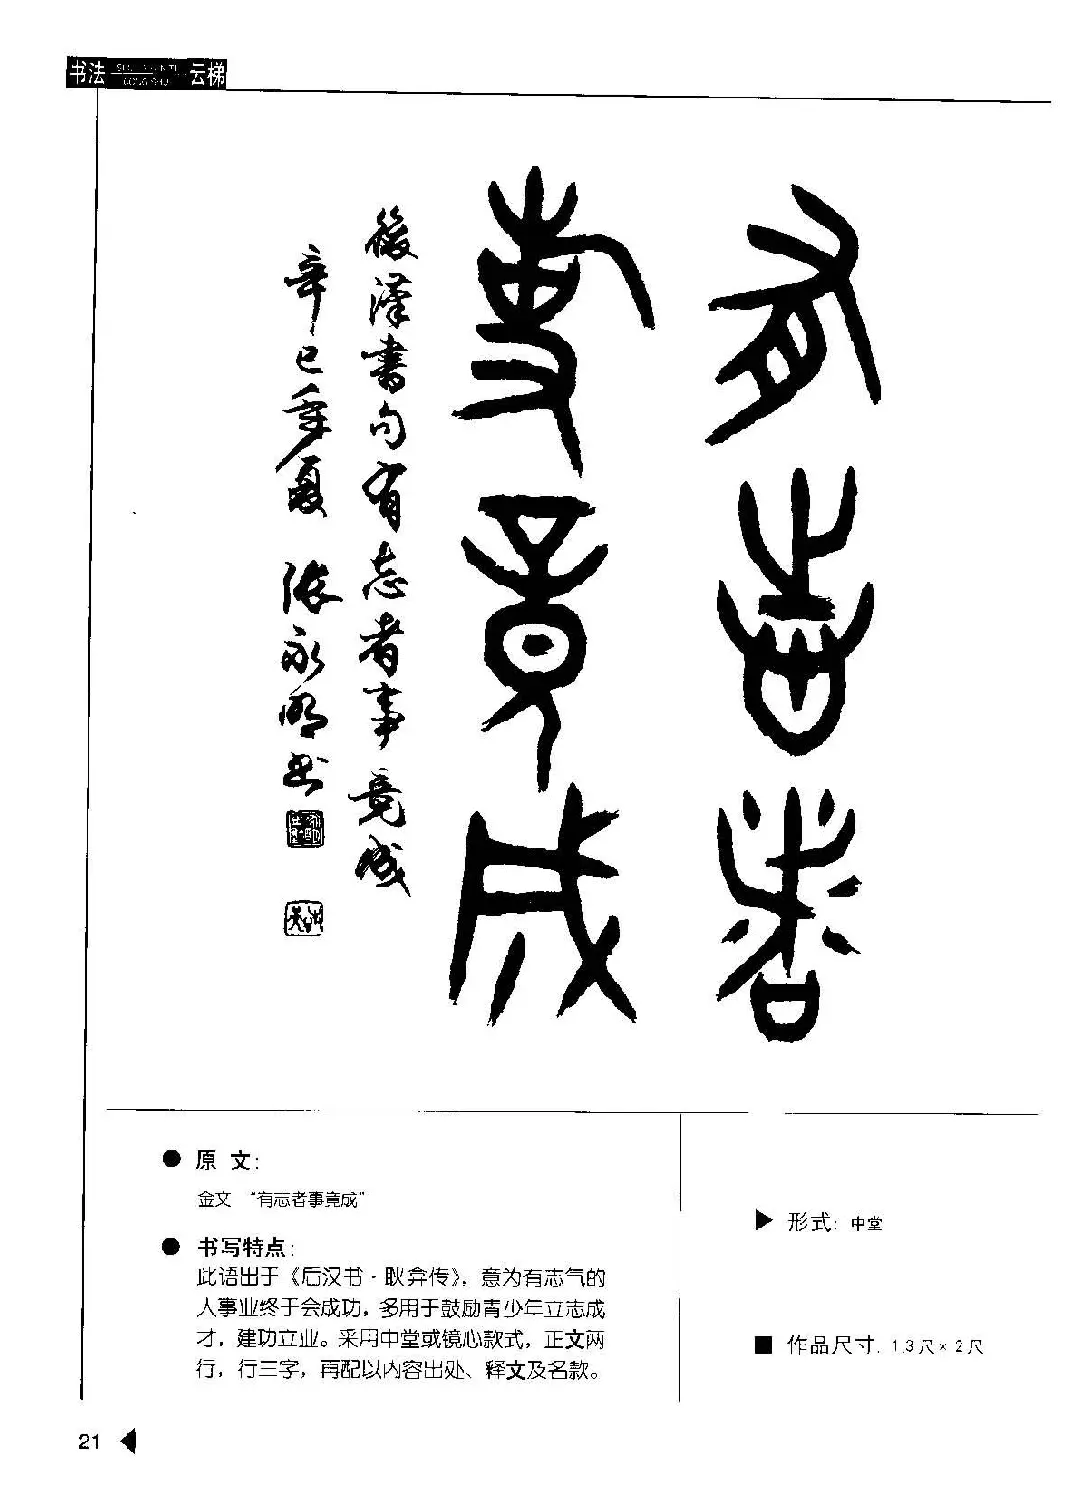 书法 云梯
有志者
事竟成
後漢書句有志者事竟成
辛巳年夏 张永明书
● 原 文：
金文 “有志者事竟成”
● 书写特点：
此语出于《后汉书·耿弇传》，意为有志气的
人事业终于会成功，多用于鼓励青少年立志成
才，建功立业。采用中堂或镜心款式，正文两
行，行三字，再配以内容出处、释文及名款。
▶ 形式：中堂
■ 作品尺寸：1.3尺×2尺
21